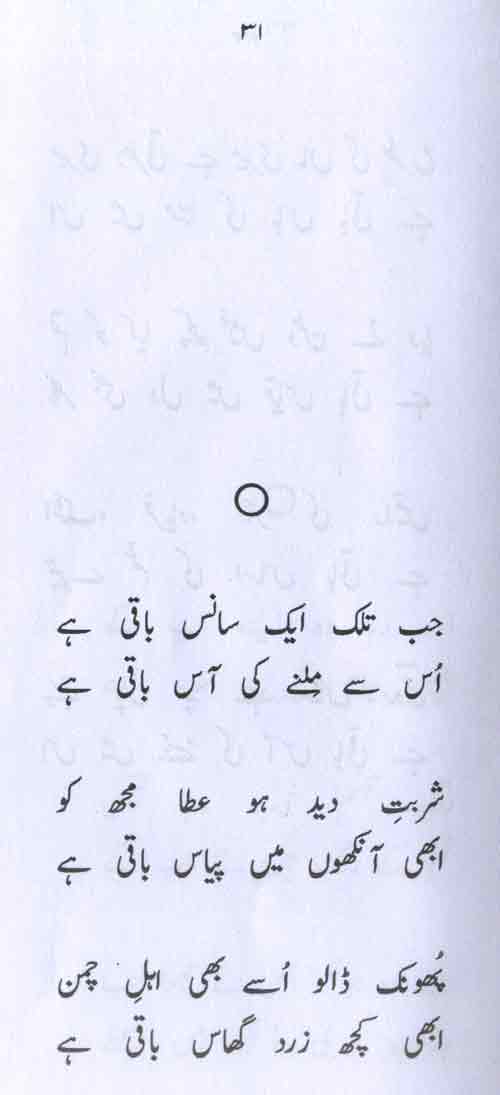 ۳۱
جب تلک ایک سانس باقی ہے
اُس سے مِلنے کی آس باقی ہے
شربتِ دید ہو عطا مجھ کو
ابھی آنکھوں میں پیاس باقی ہے
پُھونک ڈالو اُسے بھی اہلِ چمن
ابھی کچھ زرد گھاس باقی ہے